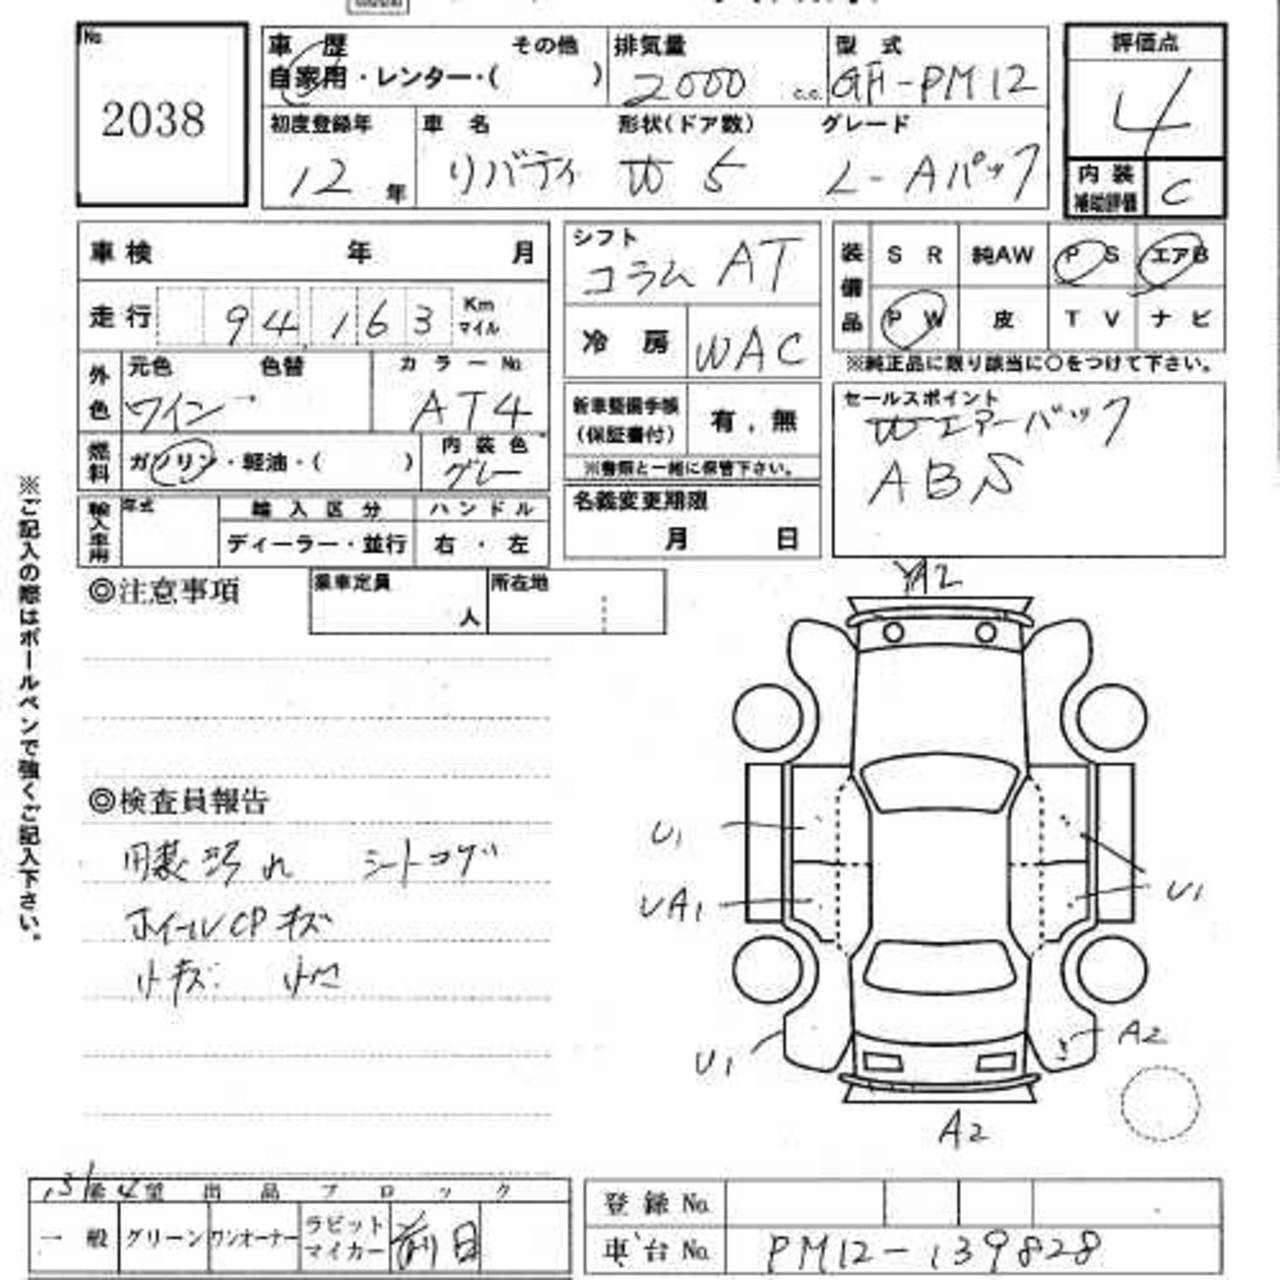 No.
2038
車歴 その他
自家用・レンター・( )
排気量
2000 c.c.
型式
GF-PM12
評価点
4
内装
補助評価
C
初度登録年
12年
車名
リバティ
形状(ドア数)
W 5
グレード
L-Aパック
車検 年 月
走行 94,163 Km マイル
外色
元色 色替
ワイン
カラーNo.
AT4
燃料
ガソリン・軽油・( )
内装色
グレー
輸入車用
年式
輸入区分
ディーラー・並行
ハンドル
右・左
シフト
コラム AT
冷房
WAC
新車整備手帳
(保証書付)
有.無
※書類と一緒に保管下さい。
名義変更期限
月 日
装備品
SR 純AW PS エアB
PW 皮 TV ナビ
※純正品に限り該当に○をつけて下さい。
セールスポイント
Wエアーバック
ABS
※ご記入の際はボールペンで強くご記入下さい。
◎注意事項
乗車定員
人
所在地
YA2
◎検査員報告
内装汚れ シートコゲ
ホイールCPキズ
小キズ 小凹
U1
UA1
U1
U1
A2
A2
希望出品ブロック
一般 グリーン ワンオーナー ラビットマイカー 前日
登録No.
車台No. PM12-139828